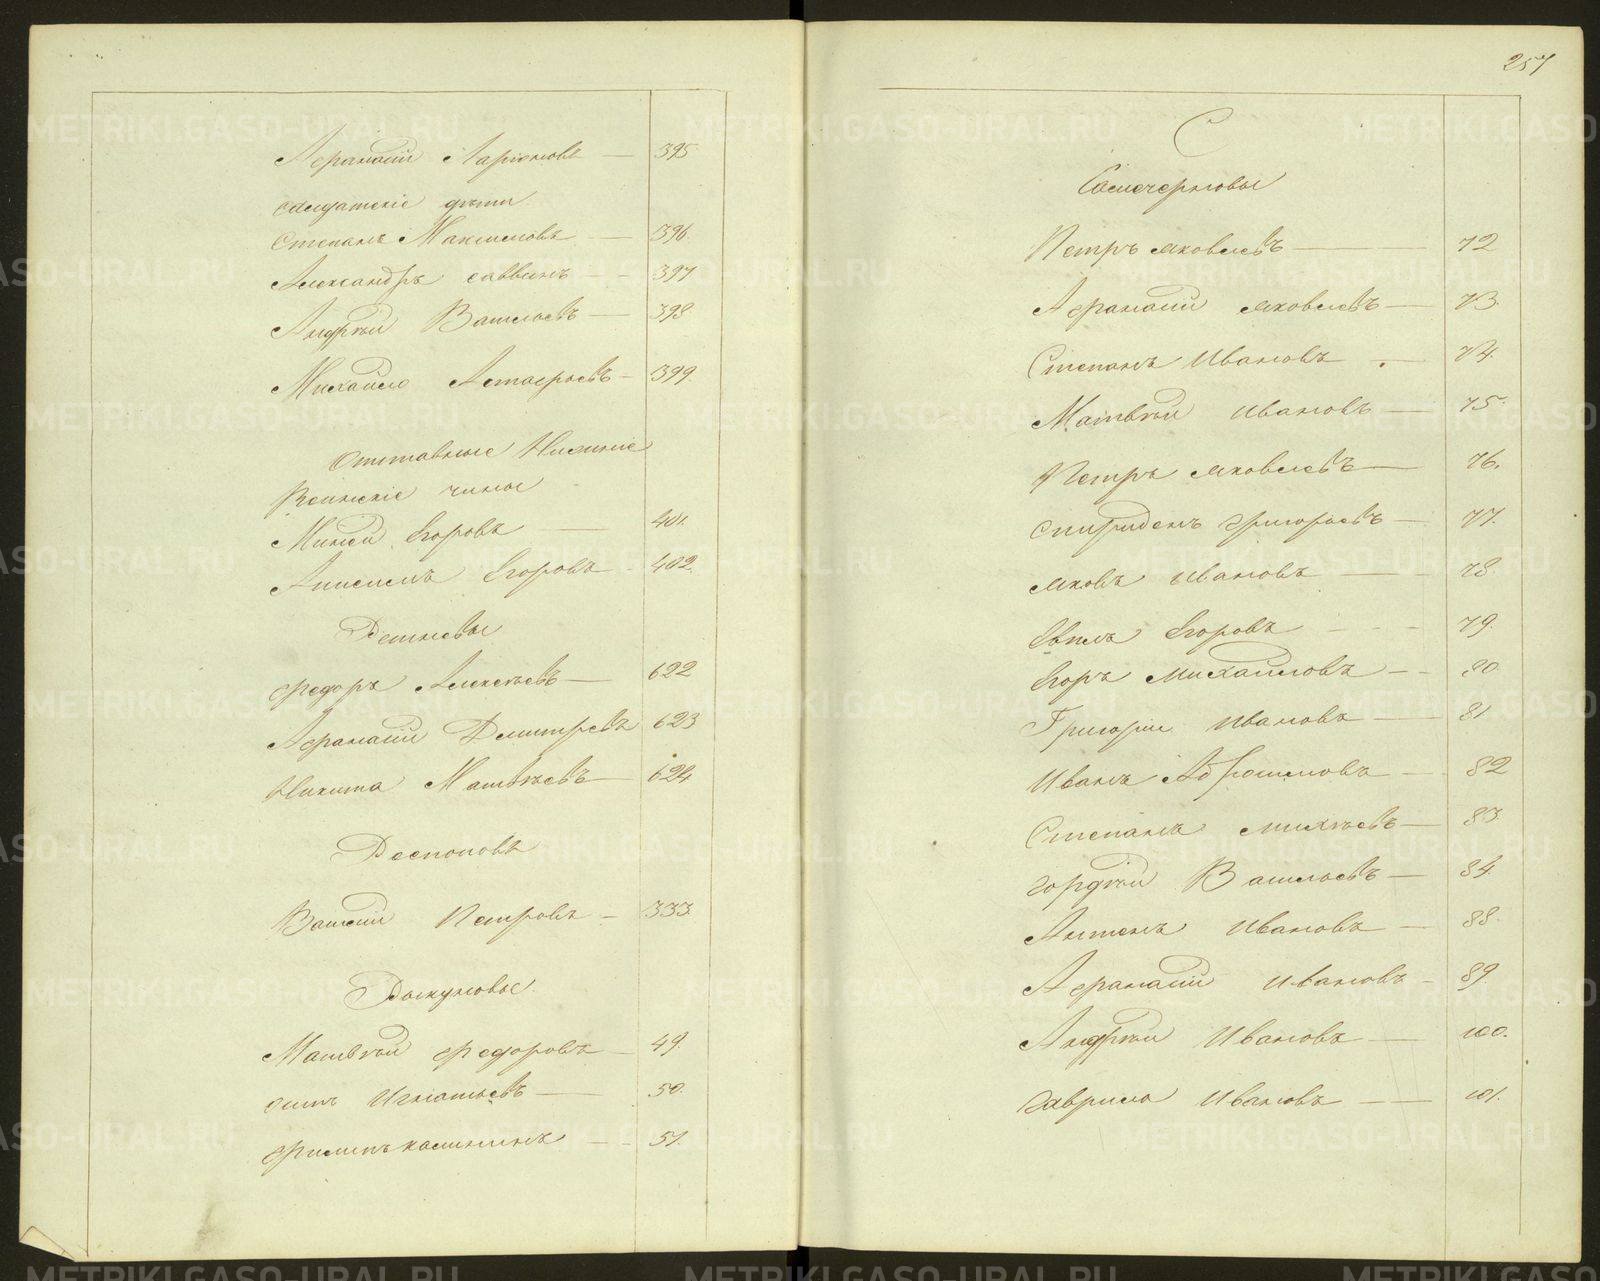 Афанасiй Ларiоновъ — 395.
Солдатскiе дѣти.
Степанъ Максимовъ — 396.
Александръ Саввинъ — 397
Андрѣй Васильевъ — 398
Михайло Астафьевъ — 399.
Отставные Нижнiе
Воинскiе чины
Егоровъ — 401.
Анисимъ Егоровъ — 402.
Федоръ Алексѣевъ — 622
Афанасiй Дмитрiевъ 623
Никита Матвѣевъ — 624
Василiй Петровъ — 333.
Матвѣй Федоровъ — 49.
Осипъ Игнатьевъ — 50.
Филипъ Калининъ — 51.
257
С
Петръ Яковлевъ — 72
Афанасiй Яковлевъ — 73.
Степанъ Ивановъ — 74.
Матвѣй Ивановъ — 75.
Петръ Яковлевъ — 76.
Спиридонъ Григорьевъ — 77.
Яковъ Ивановъ — 78.
Егоровъ — 79.
Егоръ Михайловъ — 80.
Григорiй Ивановъ — 81
Иванъ — 82
Степанъ Михѣевъ — 83
Гордѣй Васильевъ — 84.
Антонъ Ивановъ — 88.
Афанасiй Ивановъ — 89.
Андрѣй Ивановъ — 100.
Гаврило Ивановъ — 101.
METRIKI.GASO-URAL.RU